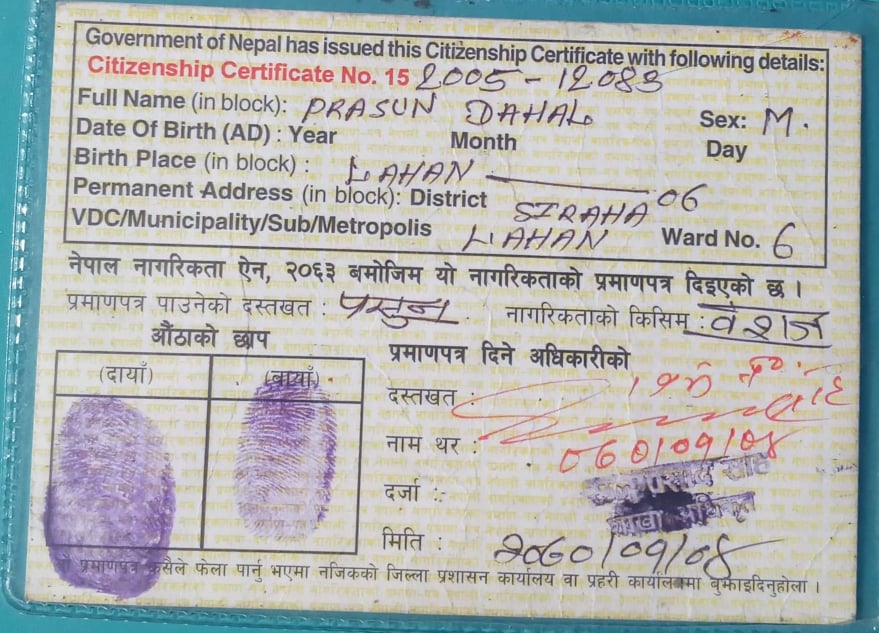 Government of Nepal has issued this Citizenship Certificate with following details:
Citizenship Certificate No. 15 2005-12083
Full Name (in block): PRASUN DAHAL Sex: M.
Date Of Birth (AD) : Year Month Day
Birth Place (in block) : LAHAN
Permanent Address (in block): District SIRAHA 06
VDC/Municipality/Sub/Metropolis LAHAN Ward No. 6
नेपाल नागरिकता ऐन, २०६३ बमोजिम यो नागरिकताको प्रमाणपत्र दिइएको छ ।
प्रमाणपत्र पाउनेको दस्तखत : प्रसुन नागरिकताको किसिम : वंशज
औंठाको छाप
(दायाँ) (बायाँ)
प्रमाणपत्र दिने अधिकारीको
दस्तखत :
नाम थर :
060/09/08
दर्जा :
शाखा अधिकृत
मिति : २०६०/09/08
यो प्रमाणपत्र कसैले फेला पार्नु भएमा नजिकको जिल्ला प्रशासन कार्यालय वा प्रहरी कार्यालयमा बुझाइदिनुहोला ।